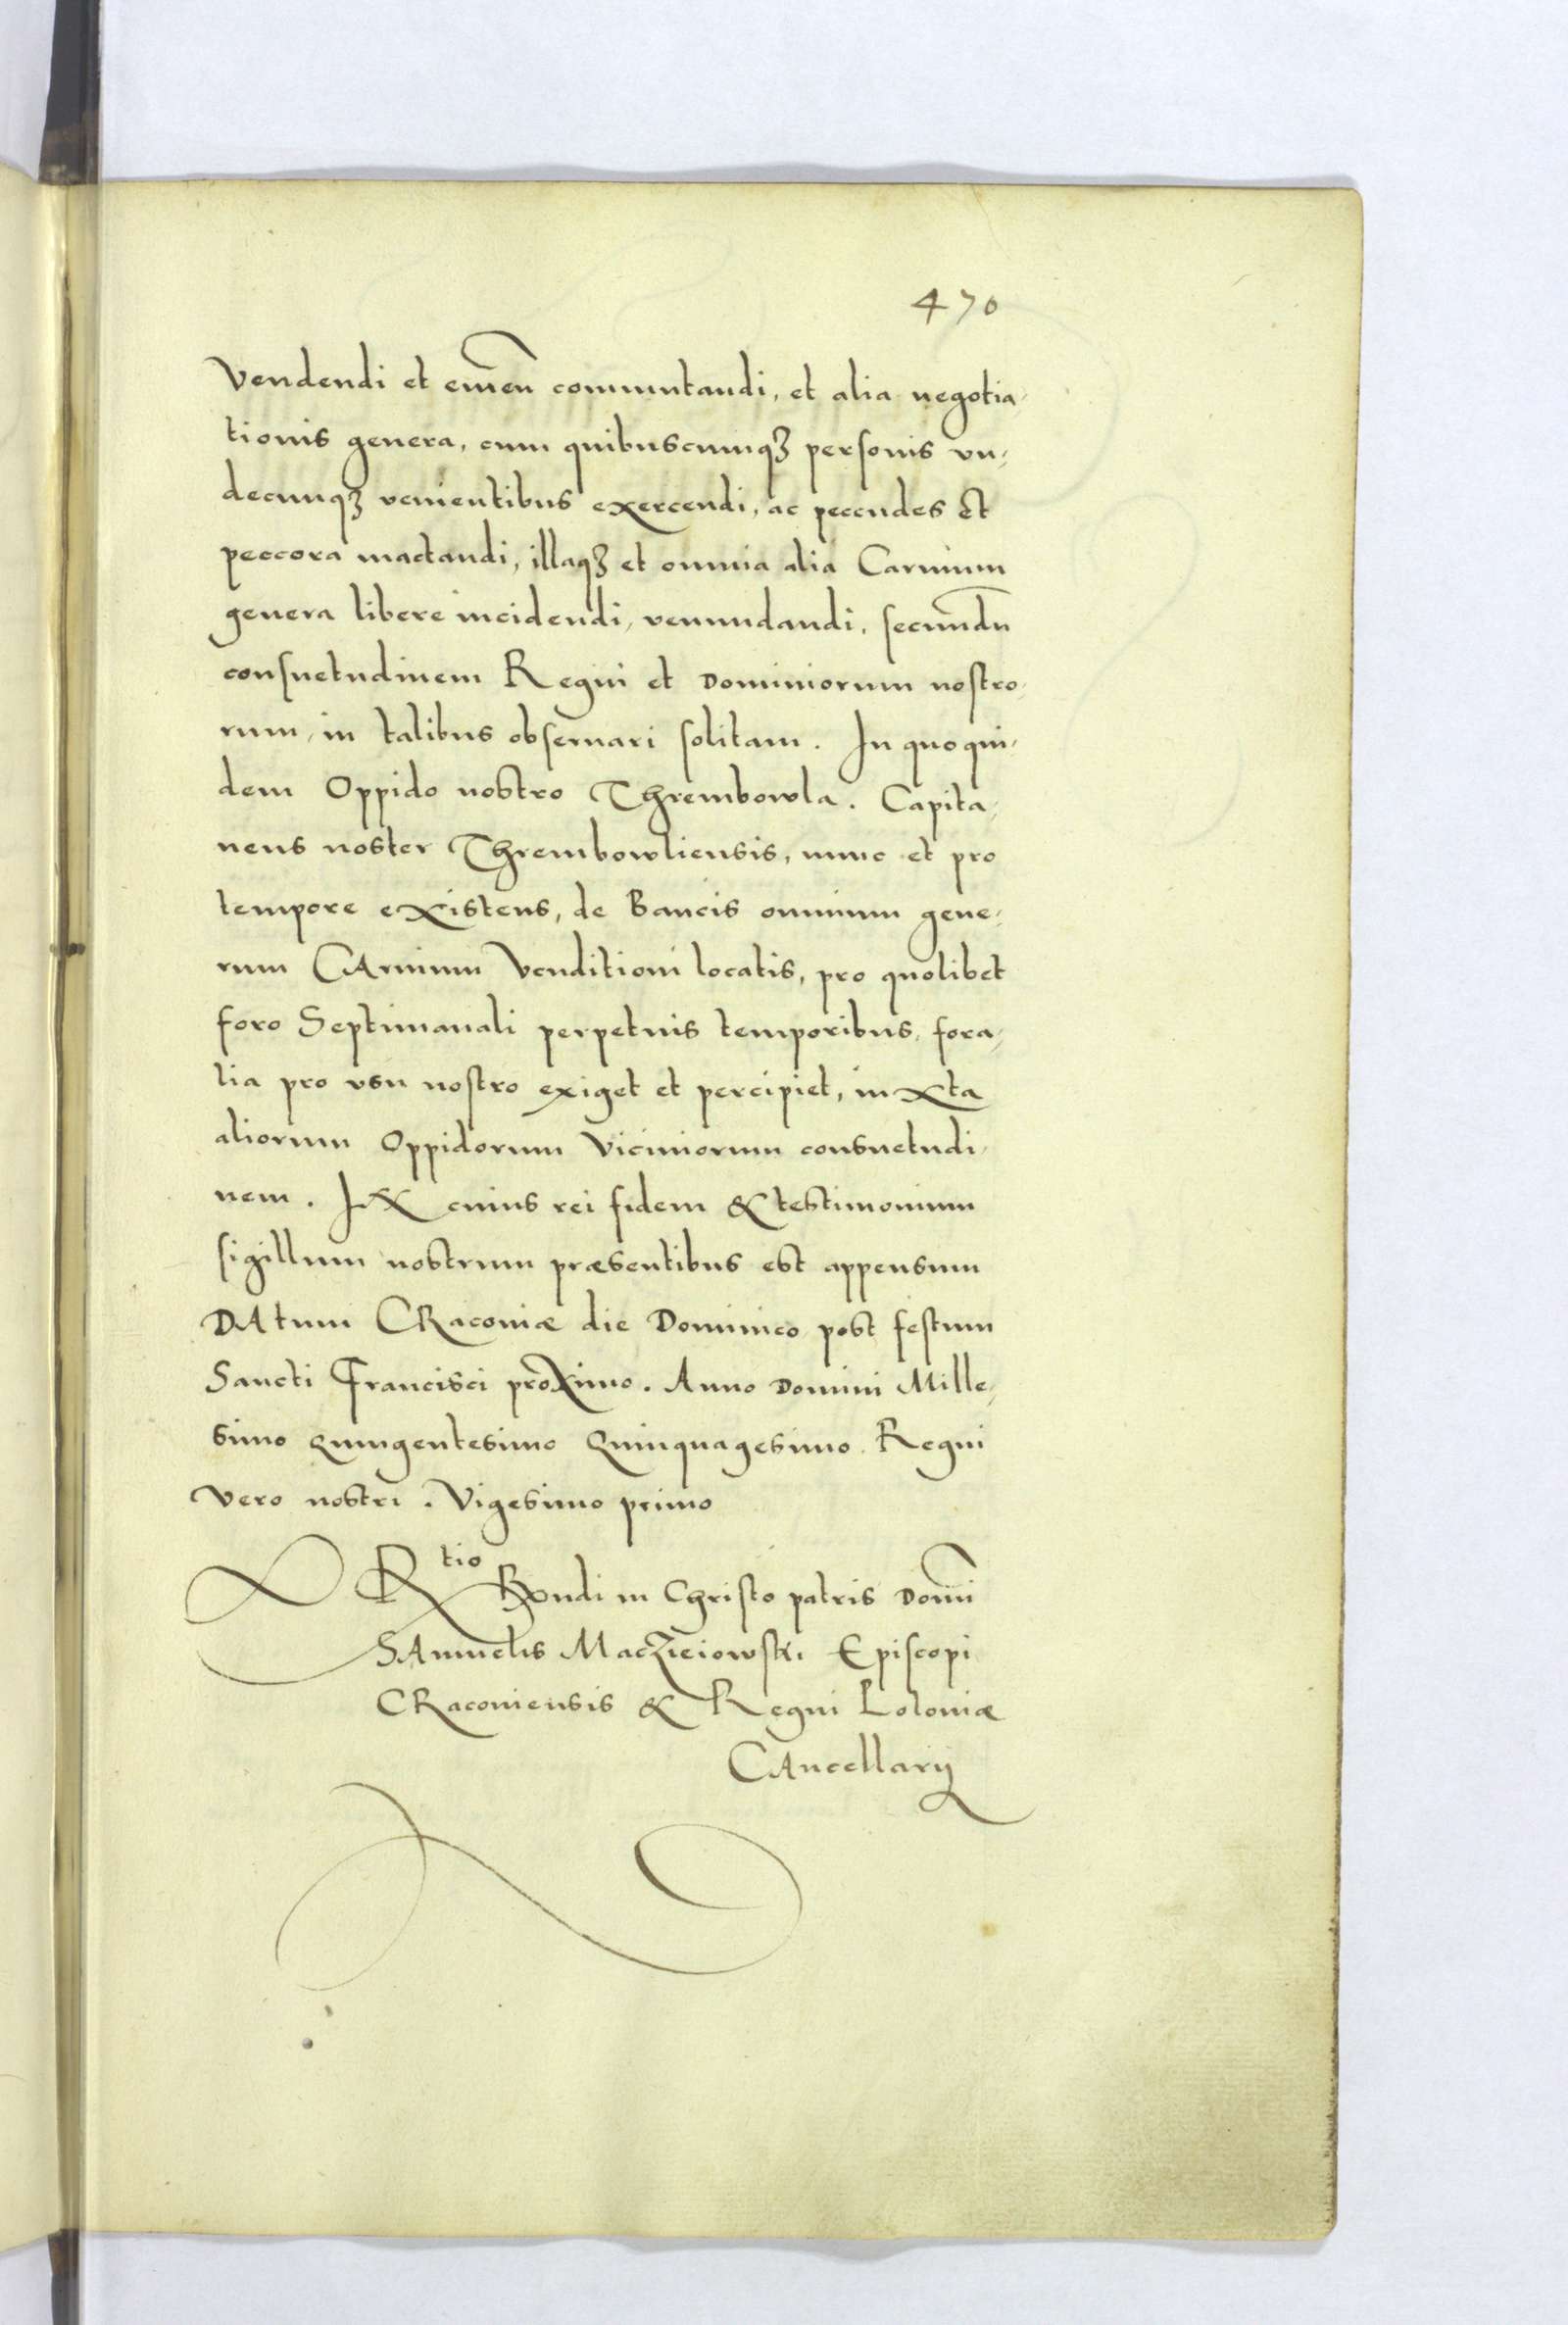 470
Vendendi et emen̄ commutandi, et alia negotia-
tionis genera, cum quibuscumqꝫ personis un-
decunqꝫ venientibus exercendi, ac peccudes Et
peccora mactandi, illaqꝫ et omnia alia Carnium
genera libere incidendi, venundandi, secundū
consuetudinem Regni et Dominiorum nostro-
rum, in talibus obseruari solitam. In quo qui-
dem Oppido nostro Thrembowla. Capita-
neus noster Thrembowliensis, nunc et pro
tempore existens, de Bancis omnium gene-
rum CArnium Venditioni locatis, pro quolibet
foro Septimanali perpetuis temporibus, fora-
lia pro vsu nostro exiget et percipiet, iuxta
aliorum Oppidorum Viciniorum consuetudi-
nem. IN cuius rei fidem & testimonium
sigillum nostrum præsentibus est appensum
DAtum CRacoviæ die Dominico post festum
Sancti Francisci proximo. Anno Domini Mille-
simo Quingentesimo Quinquagesimo. Regni
Vero nostri. Vigesimo primo
Rtio Rvndi in Christo patris Domī
SAmuelis Maczieiowski Episcopi
CRacoviensis & Regni Poloniæ
CAncellarij